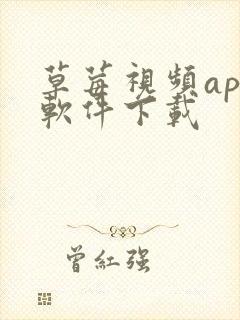 草莓視頻ap
軟件下載
曾紅强